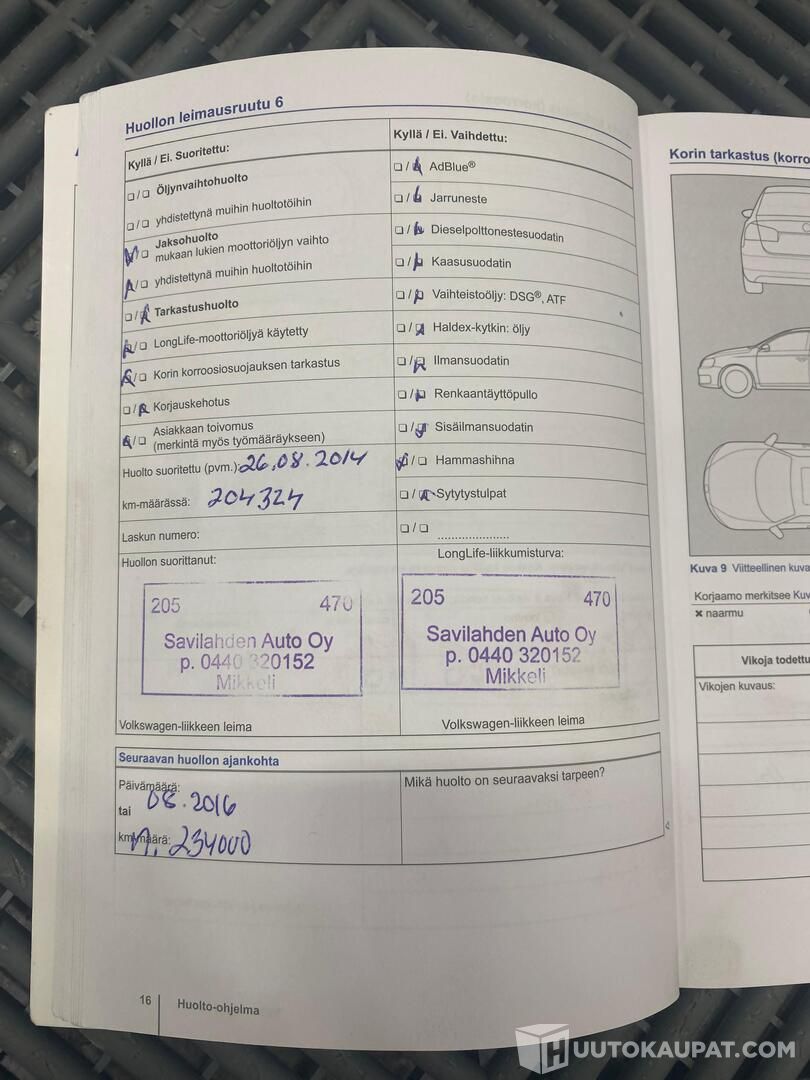 Huollon leimausruutu 6
Kyllä / Ei. Suoritettu:
❏/❏ Öljynvaihtohuolto
❏/❏ yhdistettynä muihin huoltotöihin
❏/❏ Jaksohuolto
mukaan lukien moottoriöljyn vaihto
❏/❏ yhdistettynä muihin huoltotöihin
❏/❏ Tarkastushuolto
❏/❏ LongLife-moottoriöljyä käytetty
❏/❏ Korin korroosiosuojauksen tarkastus
❏/❏ Korjauskehotus
❏/❏ Asiakkaan toivomus
(merkintä myös työmääräykseen)
Huolto suoritettu (pvm.): 26.08.2014
km-määrässä: 204324
Laskun numero:
Huollon suorittanut:
205 470
Savilahden Auto Oy
p. 0440 320152
Mikkeli
Volkswagen-liikkeen leima
Kyllä / Ei. Vaihdettu:
❏/❏ AdBlue®
❏/❏ Jarruneste
❏/❏ Dieselpolttonestesuodatin
❏/❏ Kaasusuodatin
❏/❏ Vaihteistoöljy: DSG®, ATF
❏/❏ Haldex-kytkin: öljy
❏/❏ Ilmansuodatin
❏/❏ Renkaantäyttöpullo
❏/❏ Sisäilmansuodatin
❏/❏ Hammashihna
❏/❏ Sytytystulpat
❏/❏ ......................
LongLife-liikkumisturva:
205 470
Savilahden Auto Oy
p. 0440 320152
Mikkeli
Volkswagen-liikkeen leima
Seuraavan huollon ajankohta
Päivämäärä: 08.2016
tai
km-määrä: n. 234000
Mikä huolto on seuraavaksi tarpeen?
16 Huolto-ohjelma
Korin tarkastus (korro
Kuva 9 Viitteellinen kuva
Korjaamo merkitsee Kuv
✖ naarmu
Vikoja todettu
Vikojen kuvaus:
HUUTOKAUPAT.COM